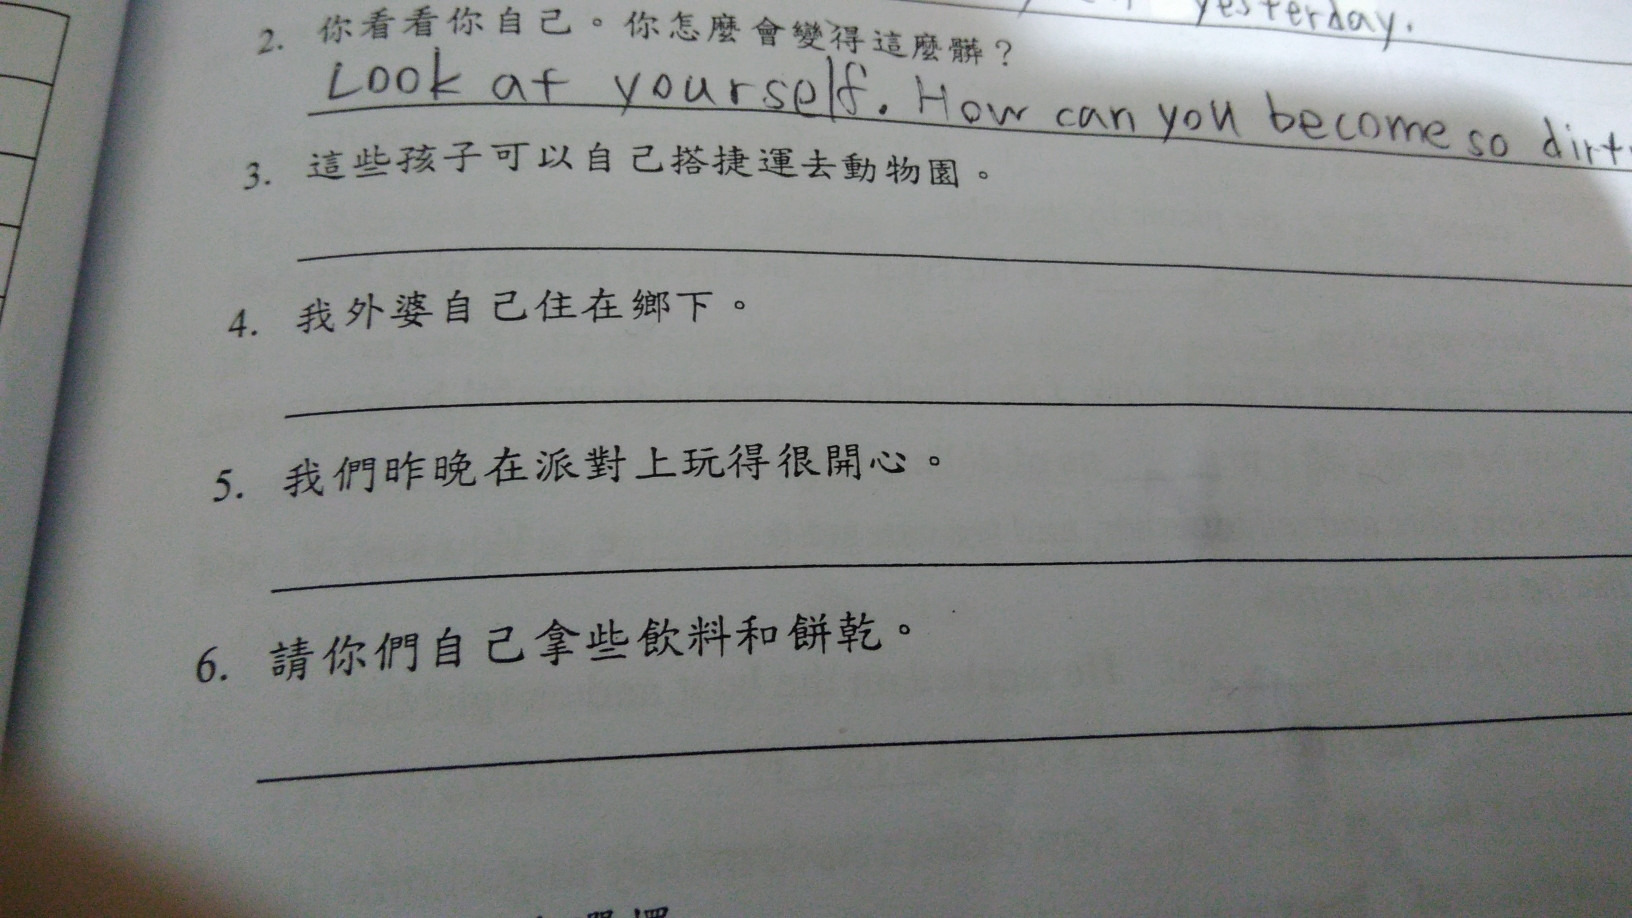 yesterday.
2. 你看看你自己。你怎麼會變得這麼髒？
Look at yourself. How can you become so dirt
3. 這些孩子可以自己搭捷運去動物園。
4. 我外婆自己住在鄉下。
5. 我們昨晚在派對上玩得很開心。
6. 請你們自己拿些飲料和餅乾。